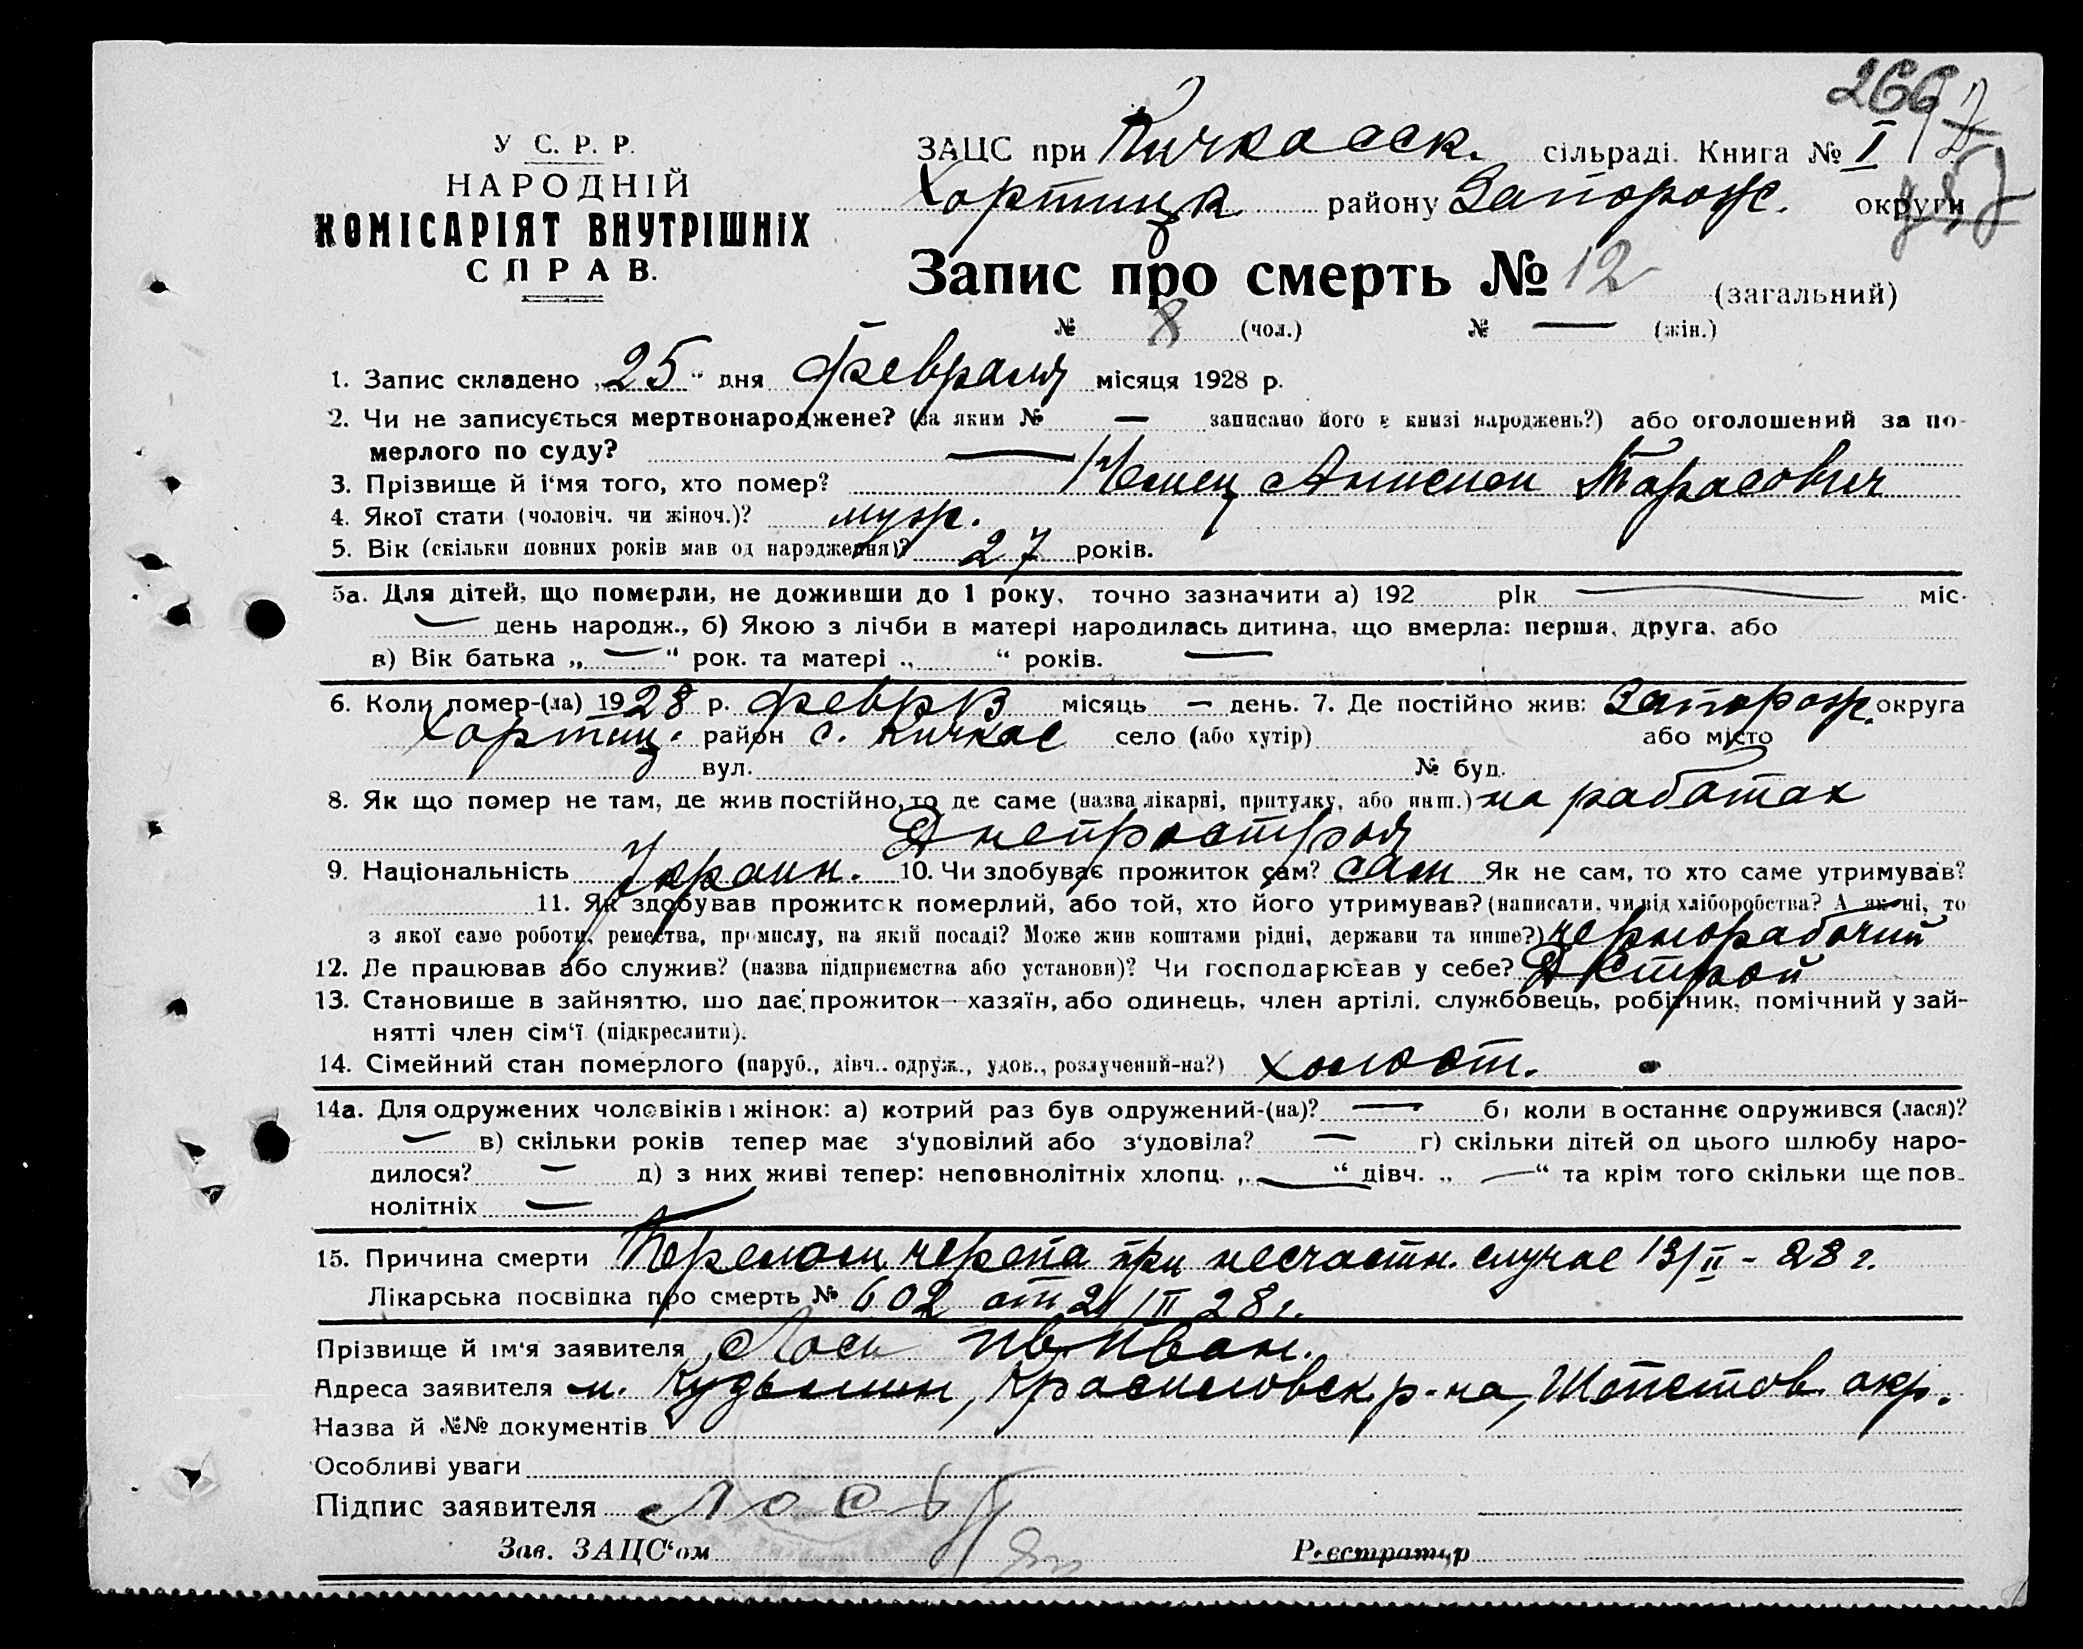 266
У С. Р. Р.
НАРОДНІЙ
КОМІСАРІЯТ ВНУТРІШНІХ
СПРАВ.
ЗАЦС при Кичкасск. сільраді. Книга № I
Хортицк. району Запорож. округи
Запис про смерть № 12 (загальний)
№ 8 (чол.) № — (жін.)
1. Запис складено „25“ дня февраля місяця 1928 р.
2. Чи не записується мертвонароджене? (за яким № — записано його в книзі народжень?) або оголошений за по-
мерлого по суду? —
3. Прізвище й і‘мя того, хто помер? Немец Тарасович
4. Якої стати (чоловіч. чи жіноч.)? муж.
5. Вік (скільки повних років мав од народження)? 27 років.
5а. Для дітей, що померли, не доживши до 1 року, точно зазначити а) 192 рік — міс.
— день народж., б) Якою з лічби в матері народилась дитина, що вмерла: перша, друга, або
в) Вік батька „ — “ рок. та матері „ “ років. —
6. Коли помер-(ла) 1928 р. февр 13 місяць — день. 7. Де постійно жив: Запорож. округа
Хортиц. район с. Кичкас село (або хутір) або місто
вул. № буд.
8. Як що помер не там, де жив постійно, то де саме (назва лікарні, притулку, або инш.) на работах
Днепростроя
9. Національність Украин. 10. Чи здобуває прожиток сам? сам Як не сам, то хто саме утримував?
11. Як здобував прожиток померлий, або той, хто його утримував? (написати, чи від хліборобства? А як ні, то
з якої саме роботи, ремества, промислу, на якій посаді? Може жив коштами рідні, держави та инше?) чернорабочий
12. Де працював або служив? (назва підприємства або установи)? Чи господарював у себе? Дстрой
13. Становище в зайняттю, що дає прожиток—хазяїн, або одинець, член артілі, службовець, робітник, помічний у зай-
нятті член сім‘ї (підкреслити).
14. Сімейний стан померлого (паруб., дівч.. одруж., удов., розлучений-на?) холост.
14а. Для одружених чоловіків і жінок: а) котрий раз був одружений-(на)? — б) коли в останнє одружився (лася)?
— в) скільки років тепер має з‘удовілий або з‘удовіла? — г) скільки дітей од цього шлюбу наро-
дилося? — д) з них живі тепер: неповнолітніх хлопц. „ — “ дівч. „ — “ та крім того скільки ще пов-
нолітніх —
15. Причина смерти Перелом черепа при несчастн. случае 13/II - 28 г.
Лікарська посвідка про смерть № 602 от 21/II 28 г.
Прізвище й ім‘я заявителя Лось Иван.
Адреса заявителя м. Кудымин, Красиловск р-на, Шепетов. окр.
Назва й №№ документів
Особливі уваги
Підпис заявителя Лось
Зав. ЗАЦС‘ом
Реєстратор